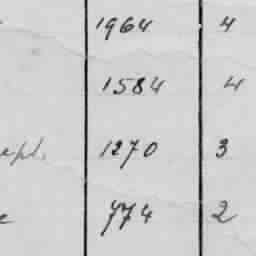 1964 4
1584 4
1270 3
774 2